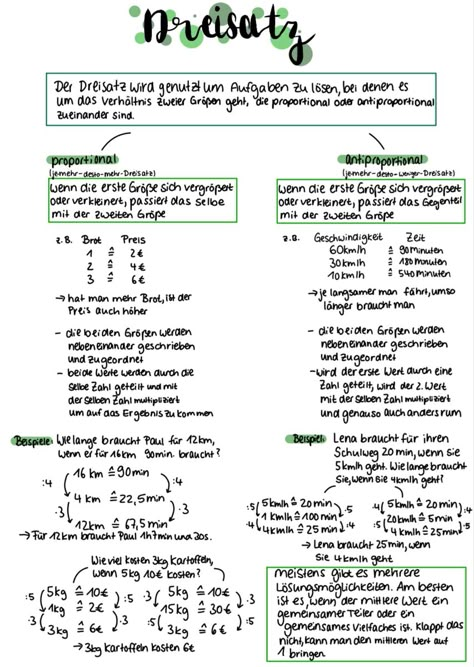 Dreisatz
Der Dreisatz wird genutzt um Aufgaben zu lösen, bei denen es
um das Verhältnis zweier Größen geht, die proportional oder antiproportional
zueinander sind.
proportional
(je mehr-desto-mehr-Dreisatz)
Wenn die erste Größe sich vergrößert
oder verkleinert, passiert das Selbe
mit der zweiten Größe
z.B. Brot Preis
1 ≙ 2€
2 ≙ 4€
3 ≙ 6€
→ hat man mehr Brot, ist der
Preis auch höher
- die beiden Größen werden
nebeneinander geschrieben
und zugeordnet
- beide Werte werden durch die
selbe Zahl geteilt und mit
der selben Zahl multipliziert
um auf das Ergebnis zu kommen
Beispiele: Wie lange braucht Paul für 12km,
wenn er für 16km 90min. braucht?
:4 16 km ≙ 90min :4
4 km ≙ 22,5min
·3 12km ≙ 67,5min ·3
→ Für 12km braucht Paul 1h 7min und 30s.
Wie viel kosten 3kg Kartoffeln,
wenn 5kg 10€ kosten?
:5 5kg ≙ 10€ :5
1kg ≙ 2€
·3 3kg ≙ 6€ ·3
·3 5kg ≙ 10€ ·3
15kg ≙ 30€
:5 3kg ≙ 6€ :5
→ 3kg Kartoffeln kosten 6€
antiproportional
(je mehr-desto-weniger-Dreisatz)
Wenn die erste Größe sich vergrößert
oder verkleinert, passiert das Gegenteil
mit der zweiten Größe
z.B. Geschwindigkeit Zeit
60km/h ≙ 90minuten
30km/h ≙ 180minuten
10km/h ≙ 540minuten
→ je langsamer man fährt, umso
länger braucht man
- die beiden Größen werden
nebeneinander geschrieben
und zugeordnet
- wird der erste Wert durch eine
Zahl geteilt, wird der 2. Wert
mit der selben Zahl multipliziert
und genauso auch andersrum
Beispiel: Lena braucht für ihren
Schulweg 20min, wenn sie
5km/h geht. Wie lange braucht
sie, wenn sie 4km/h geht?
:5 5km/h ≙ 20min ·5
1km/h ≙ 100min
·4 4km/h ≙ 25min :4
·4 5km/h ≙ 20min :4
20km/h ≙ 5min
:5 4km/h ≙ 25min ·5
→ Lena braucht 25min, wenn
sie 4km/h geht
meistens gibt es mehrere
Lösungsmöglichkeiten. Am besten
ist es, wenn der mittlere Wert ein
gemeinsamer Teiler oder ein
gemeinsames Vielfaches ist. Klappt das
nicht, kann man den mittleren Wert auf
1 bringen.